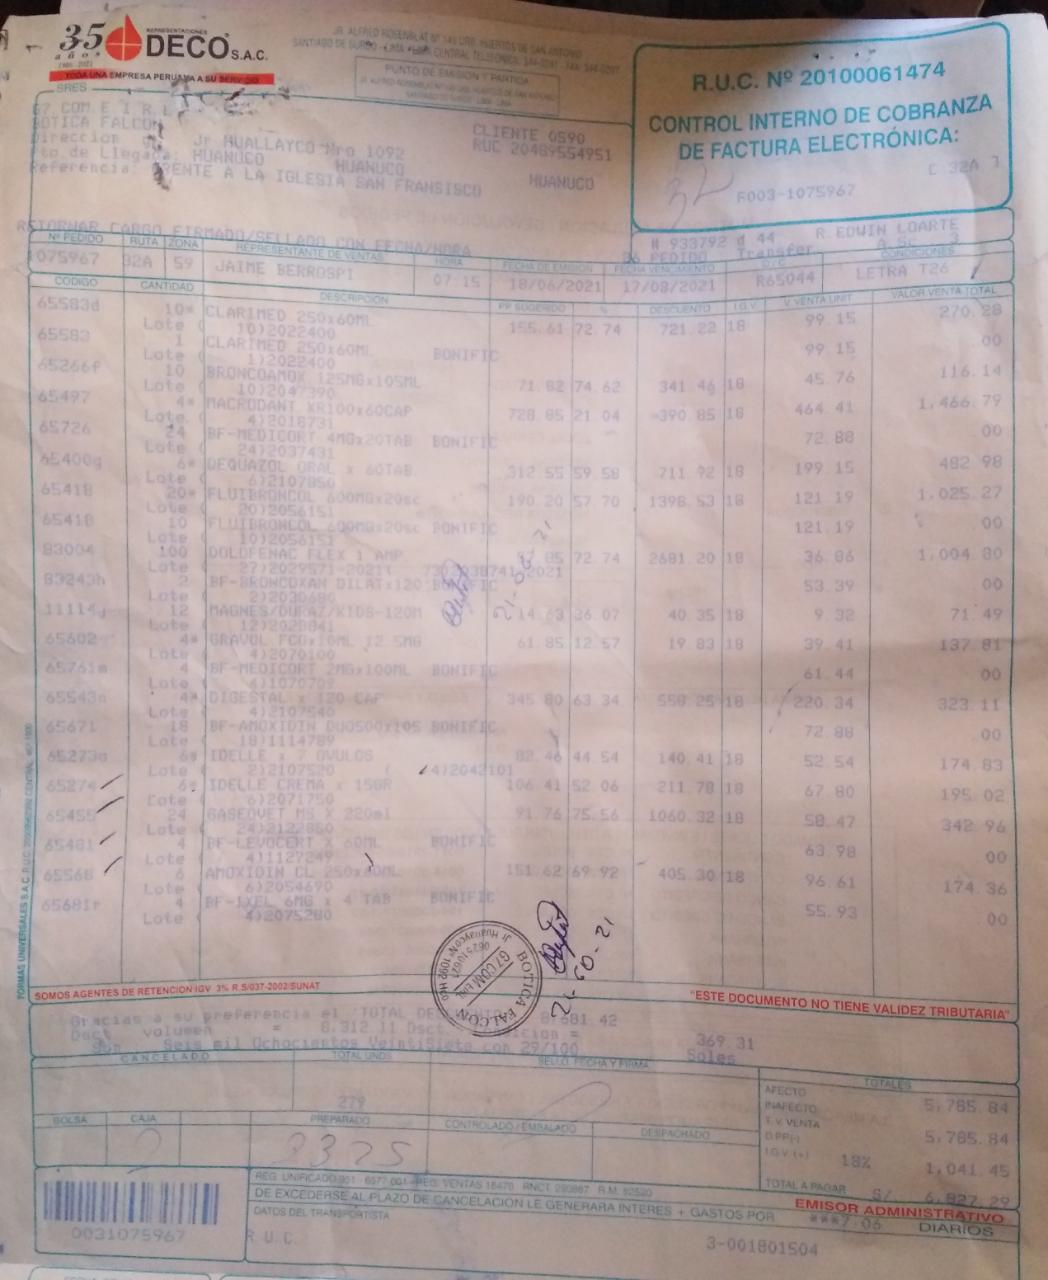 35 años
1986-2021
REPRESENTACIONES
DECO S.A.C.
TODA UNA EMPRESA PERUANA A SU SERVICIO
JR. ALFRED ROSENBLAT Nº 145 URB. HUERTOS DE SAN ANTONIO
SANTIAGO DE SURCO - LIMA PERU CENTRAL TELEFONICA
PUNTO DE EMISION Y PARTIDA
R.U.C. Nº 20100061474
CONTROL INTERNO DE COBRANZA
DE FACTURA ELECTRÓNICA:
C 32A 1
32
F003-1075967
SRES
G7 COM E I R L
BOTICA FALCON
Direccion Jr HUALLAYCO Nro 1092
Pto.de Llegada: HUANUCO HUANUCO HUANUCO
Referencia: FRENTE A LA IGLESIA SAN FRANSISCO
CLIENTE 0590
RUC 20489554951
RETORNAR CARGO FIRMADO/SELLADO CON FECHA/HORA
# 933792 d 44 R. EDWIN LOARTE
PEDIDO Transfer. A.Sc 3
Nº PEDIDO RUTA ZONA REPRESENTANTE DE VENTAS HORA FECHA DE EMISION FECHA VENCIMIENTO O/C CONDICIONES
1075967 32A 59 JAIME BERROSPI 07:15 18/06/2021 17/08/2021 R65044 LETRA T26
CODIGO CANTIDAD DESCRIPCION PP SUGERIDO % DESCUENTO I.G.V. V.VENTA UNIT VALOR VENTA TOTAL
65583d 10* CLARIMED 250x60ML 155.61 72.74 721.22 18 99.15 270.28
Lote ( 10)2022400
65583 1 CLARIMED 250x60ML BONIFIC 99.15 00
Lote ( 1)2022400
65266f 10 BRONCOAMOX 125MGx105ML 71.82 74.62 341.46 18 45.76 116.14
Lote ( 10)2047390
65497 4* MACRODANT XR100x60CAP 728.85 21.04 390.85 18 464.41 1,466.79
Lote ( 4)2018731
65726 24 BF-MEDICORT 4MGx20TAB BONIFIC 72.88 00
Lote ( 24)2037431
65400g 6* DEQUAZOL ORAL x 60TAB 312.55 59.58 711.92 18 199.15 482.98
Lote ( 6)2107850
65418 20* FLUIBRONCOL 600MGx20sc 190.20 57.70 1398.53 18 121.19 1,025.27
Lote ( 20)2056151
65418 10 FLUIBRONCOL 600MGx20sc BONIFIC 121.19 00
Lote ( 10)2056151
83004 100 DOLOFENAC FLEX 1 AMP 85 72.74 2681.20 18 36.86 1,004.80
Lote ( 27)2029571-2021( 2021
83243h 2 BF-BRONCOXAN DILATx120 BONIFIC 53.39 00
Lote ( 2)2030680
11114j 12 MAGNES/DURAZ/KIDS-120M 14.63 36.07 40.35 18 9.32 71.49
Lote ( 12)2028841
65602 4* GRAVOL FCOx10ML 12.5MG 61.85 12.57 19.83 18 39.41 137.81
Lote ( 4)2070100
65761m 4 BF-MEDICORT 2MGx100ML BONIFIC 61.44 00
Lote ( 4)1070709
65543n 4* DIGESTAL x 120 CAP 345.80 63.34 558.25 18 220.34 323.11
Lote ( 4)2107540
65671 18 BF-AMOXIDIN DUO500x105 BONIFIC 72.88 00
Lote ( 18)1114789
65273o 6* IDELLE x 7 OVULOS 82.46 44.54 140.41 18 52.54 174.83
Lote ( 2)2107520 ( 4)2042101
65274 6* IDELLE CREMA x 15GR 106.41 52.06 211.78 18 67.80 195.02
Lote ( 6)2071750
65455 24 GASEOVET MS X 220ml 91.76 75.56 1060.32 18 58.47 342.96
Lote ( 24)2122850
65481 4 BF-LEVOCERT X 60ML BONIFIC 63.98 00
Lote ( 4)1127249
65568 6 AMOXIDIN CL 250x60ML 151.62 69.92 405.30 18 96.61 174.36
Lote ( 6)2054690
65681r 4 BF-IXEL 6MG x 4 TAB BONIFIC 55.93 00
Lote ( 4)2075280
21-06-21
BOTICA FALCON
G7 COM EIRL
Jr. Huallayco Nº 1092 Hco
21-60-21
FORMAS UNIVERSALES S.A.C.
SOMOS AGENTES DE RETENCION IGV 3% R.S/037-2002/SUNAT
"ESTE DOCUMENTO NO TIENE VALIDEZ TRIBUTARIA"
Gracias a su preferencia el TOTAL 8,681.42
Dsct volumen = 8,312.11 Dsct. = 369.31
Son Seis mil Ochocientos VeintiSiete con 29/100 Soles
CANCELADO TOTAL UNDS SELLO, FECHA Y FIRMA
279
BOLSA CAJA PREPARADO CONTROLADO/EMBALADO DESPACHADO
2 3325
TOTALES
AFECTO 5,785.84
INAFECTO
T.V. VENTA 5,785.84
D.PP(-)
I.G.V.(+) 18% 1,041.45
TOTAL A PAGAR S/. 6,827.29
0031075967
DE EXCEDERSE AL PLAZO DE CANCELACION LE GENERARA INTERES + GASTOS POR ***7.06 DIARIOS
EMISOR ADMINISTRATIVO
DATOS DEL TRANSPORTISTA
R.U.C.
3-001801504